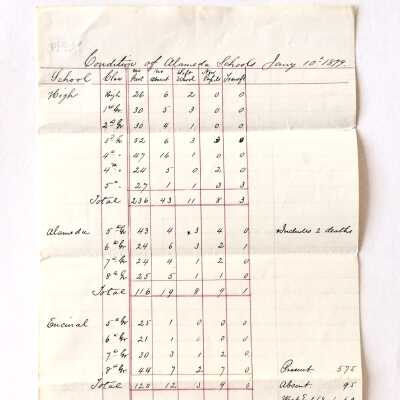 Condition of Alameda Schools Jany 10th 1879
School Clas No Pres No Absent Left School New Pupils Transf'd
High High 26 6 2 0 0
1st Gr 30 5 3 0 0
2nd Gr 30 4 1 0 0
3d Gr 52 6 3 3
4th " 47 16 1 0 0
4th " 24 5 0 2 0
5th " 27 1 1 3 3
Total 236 43 11 8 3
Alameda 5th Gr 43 4 *3 4 0 *Includes 2 deaths
6th Gr 24 6 3 2 1
7th Gr 24 4 1 2 0
8th Gr 25 5 1 1 0
Total 116 19 8 9 1
Encinal 5th Gr 25 1 0 0 0
6th Gr 21 1 0 0 0
7th Gr 30 3 1 2 0 Present 575
8th Gr 44 7 2 7 0 Absent 95
Total 120 12 3 9 0